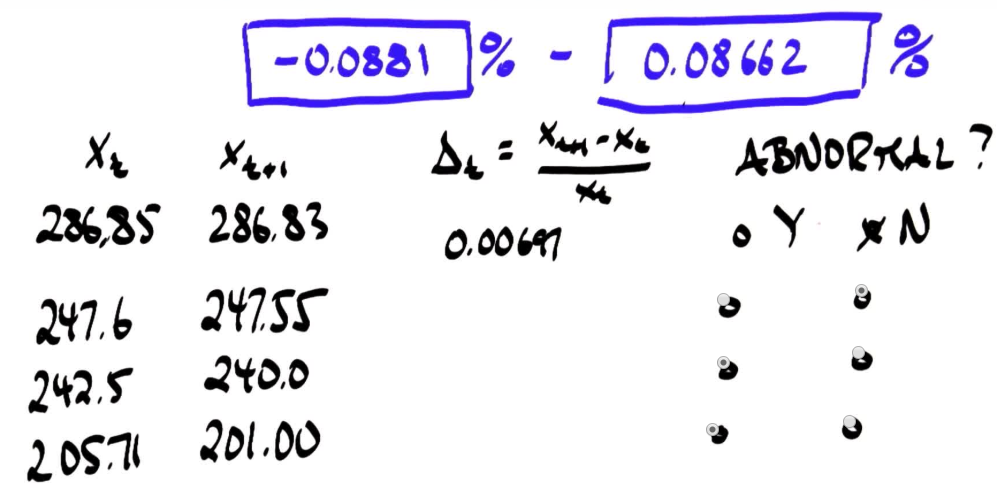 -0.0881 % - 0.08662 %
Xₜ Xₜ₊₁ Δₜ = (Xₜ₊₁ - Xₜ) / Xₜ ABNORMAL?
286.85 286.83 0.00697 o Y x N
247.6 247.55
242.5 240.0
205.71 201.00